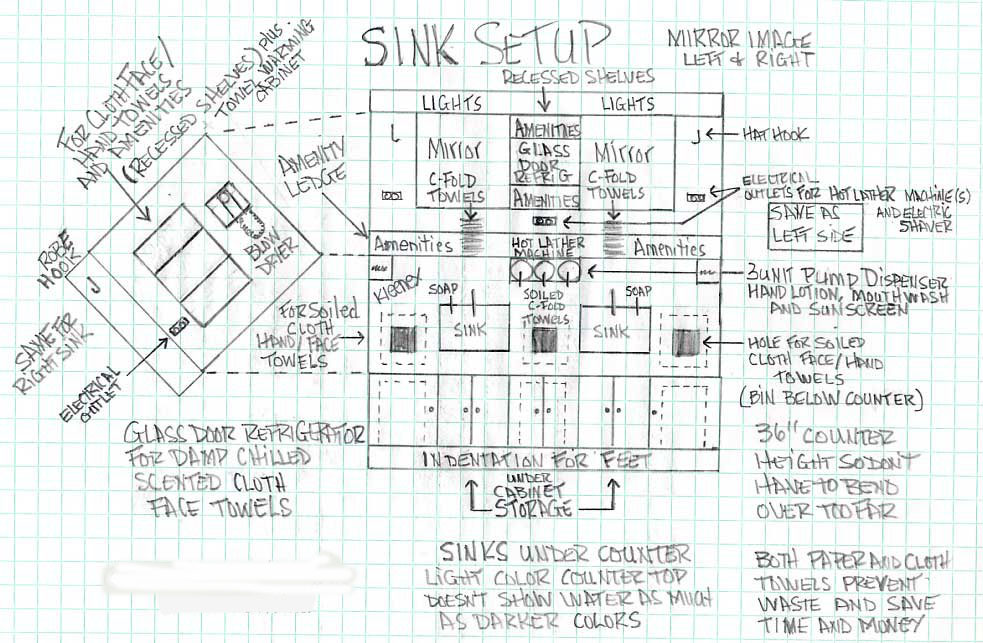 SINK SETUP
MIRROR IMAGE
LEFT & RIGHT
RECESSED SHELVES
FOR CLOTH FACE/
HAND TOWELS
AND AMENITIES
(RECESSED SHELVES) PLUS
TOWEL WARMING
CABINET
LIGHTS
LIGHTS
AMENITIES
GLASS
DOOR
REFRIG
AMENITIES
Mirror
C-FOLD
TOWELS
Mirror
C-FOLD
TOWELS
HAT HOOK
ELECTRICAL
OUTLETS FOR HOT LATHER MACHINE(S)
AND ELECTRIC
SHAVER
SAVE AS
LEFT SIDE
AMENITY
LEDGE
BLOW
DRIER
ROBE
HOOK
SAME FOR
RIGHT SINK
ELECTRICAL
OUTLET
Amenities
HOT LATHER
MACHINE
Amenities
Kleenex
SOAP
SINK
SOILED
C-FOLD
TOWELS
SOAP
SINK
3 UNIT PUMP DISPENSER
HAND LOTION, MOUTHWASH
AND SUNSCREEN
FOR SOILED
CLOTH
HAND/FACE
TOWELS
HOLE FOR SOILED
CLOTH FACE/HAND
TOWELS
(BIN BELOW COUNTER)
INDENTATION FOR FEET
UNDER
CABINET
STORAGE
GLASS DOOR REFRIGERATOR
FOR DAMP CHILLED
SCENTED CLOTH
FACE TOWELS
36" COUNTER
HEIGHT SO DONT
HAVE TO BEND
OVER TOO FAR
SINKS UNDER COUNTER
LIGHT COLOR COUNTER TOP
DOESN'T SHOW WATER AS MUCH
AS DARKER COLORS
BOTH PAPER AND CLOTH
TOWELS PREVENT
WASTE AND SAVE
TIME AND MONEY